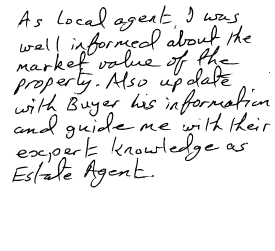 As Local agent, I was
well informed about the
market value of the
property. Also update
with Buyer his information
and guide me with their
expert knowledge as
Estate Agent.